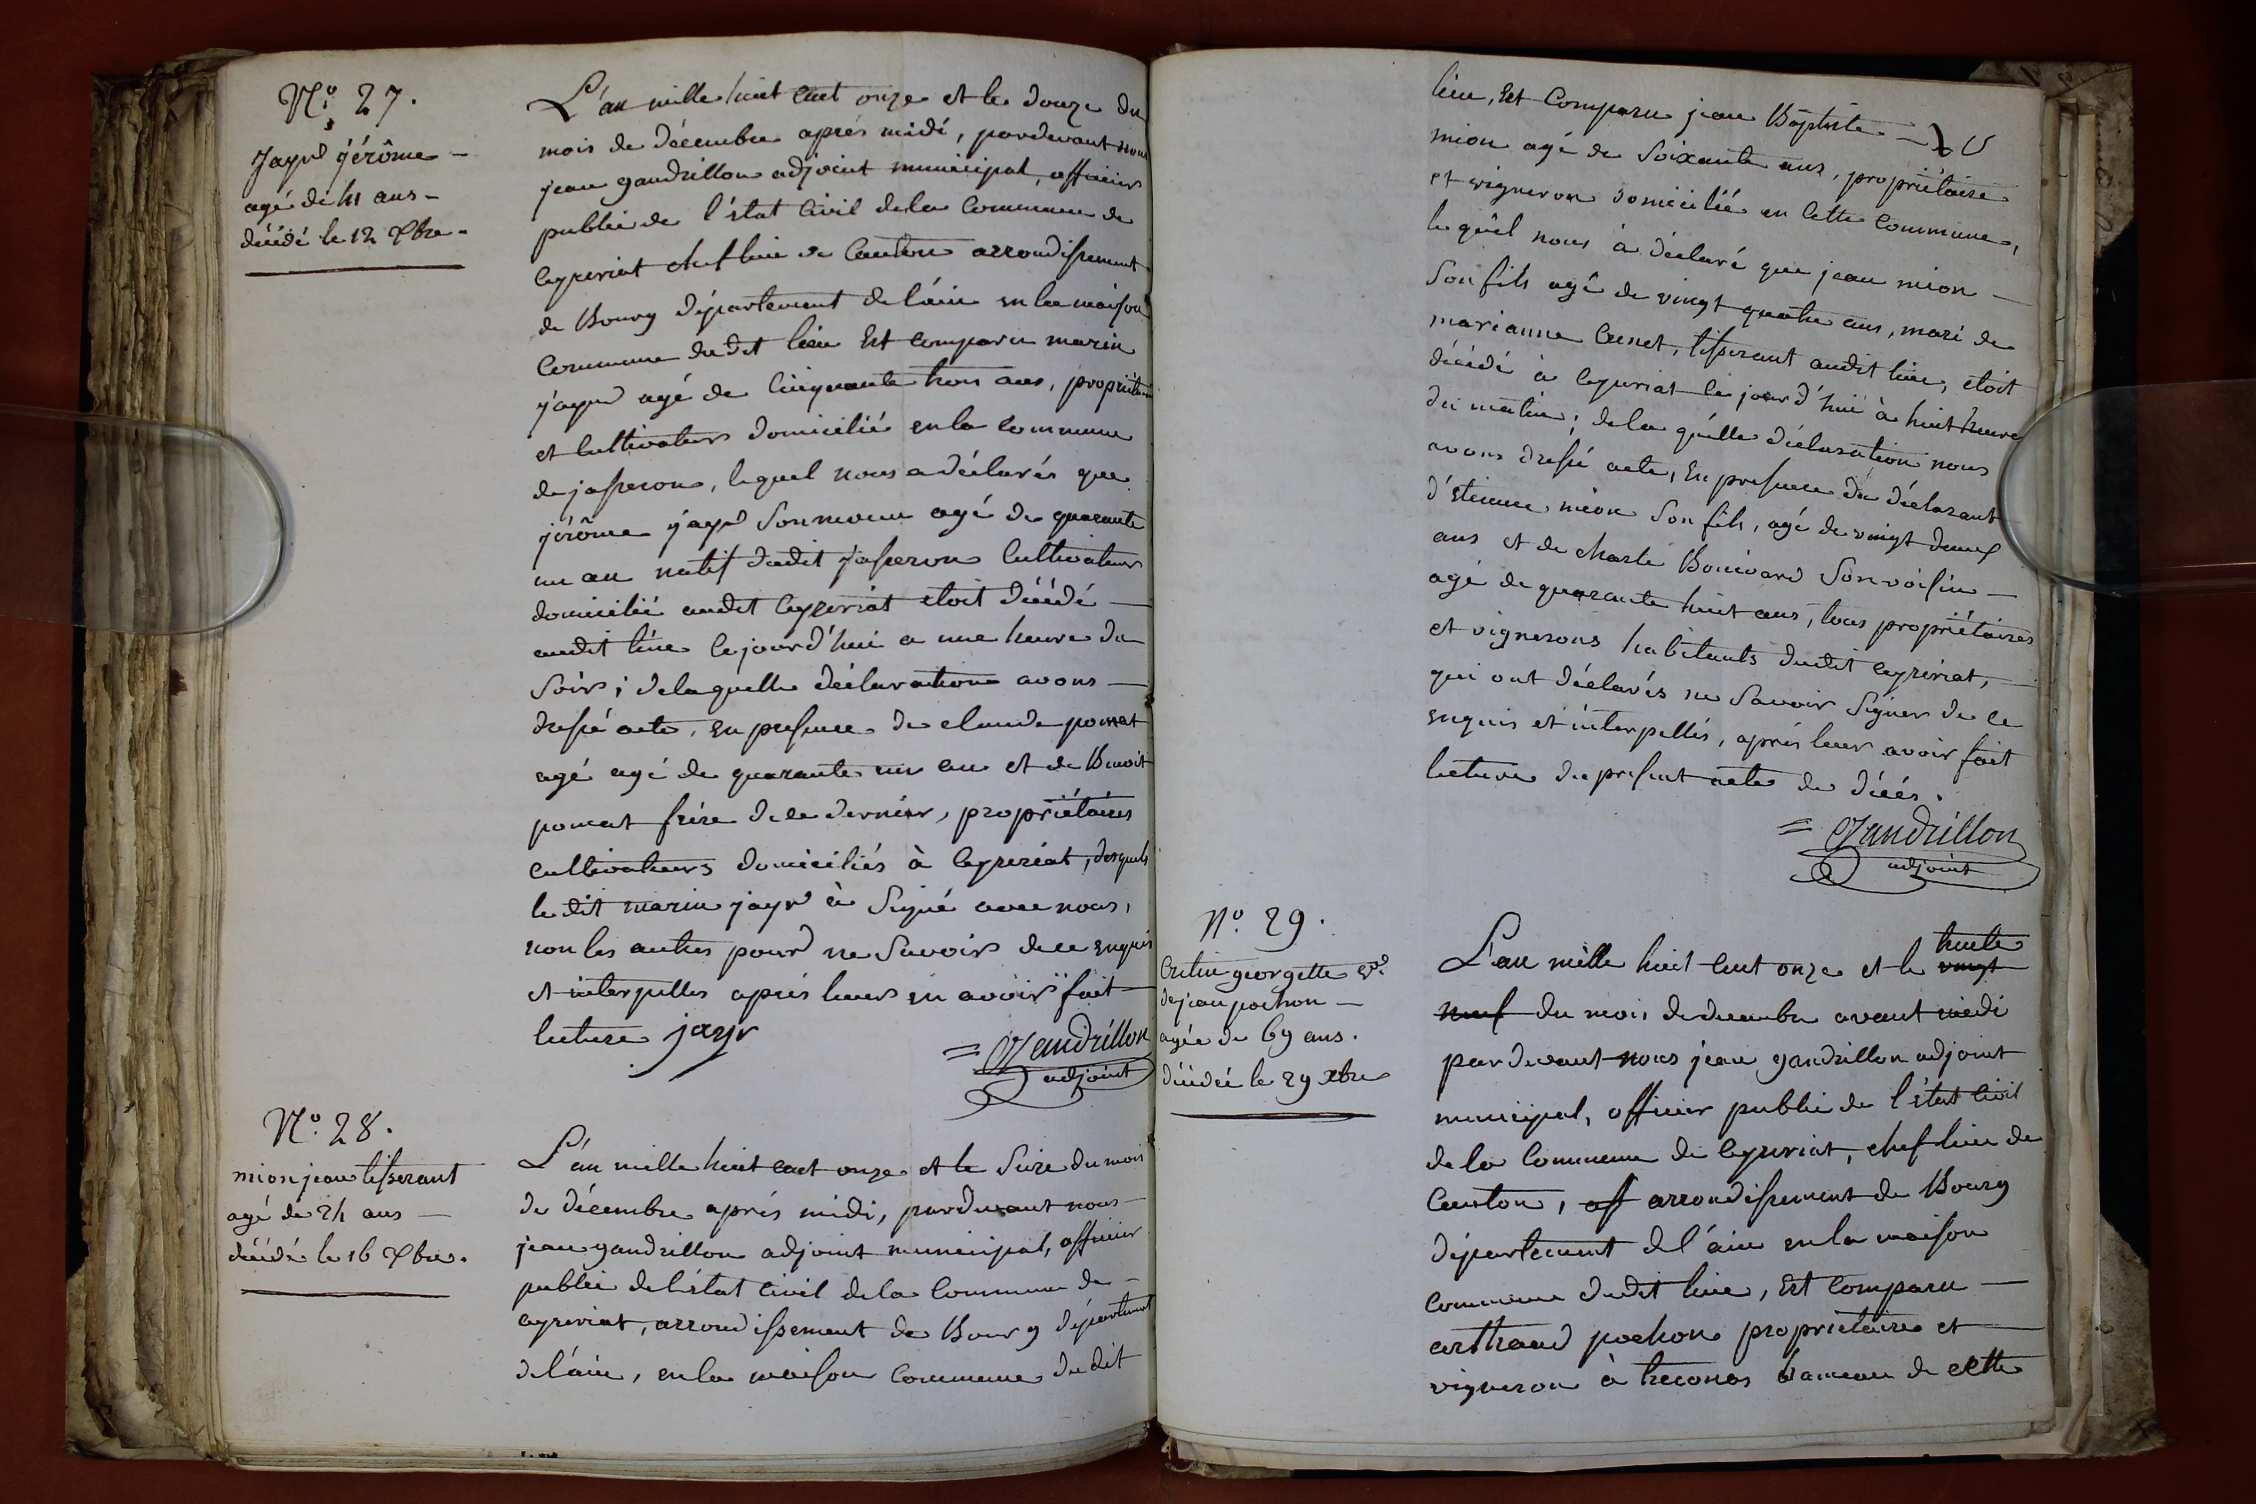 N.º 27.
Jayr Jérôme —
agé de 41 ans —
décédé le 12 Xbre.
L'an mille huit cent onze et le douze du
mois de décembre aprés midi, pardevant nous
jean gandrillon adjoint municipal, officier
public de l'état Civil dela Commune de
Ceyzeriat chef lieu de Canton arrondissement
de Bourg département de l'ain en la maison
Commune dudit lieu Est comparu marin
jayr agé de Cinquante trois ans, propriétaire
et Cultivateur domicilié en la commune
de jasseron, lequel nous a déclarés que
jérôme jayr Son neveu agé de quarante
un an natif dudit Jasseron Cultivateur
domicilié audit Ceyzeriat étoit décédé —
audit lieu Cejourd'hui a une heure du
Soir; delaquelle déclaration avons —
dressé acte, en presence de claude pomat
agé agé de quarante un an et de Benoit
pomat frère de ce dernier, propriétaires
cultivateurs domiciliés à Ceyzeriat, desquels
le dit marin jayr à Signé avec nous,
non les autres pour ne Savoir de ce enquis
et interpellés aprés leur en avoir fait
lecture jayr
= Gandrillon
adjoint
N.º 28.
mion jean tisserant
agé de 24 ans —
décédé le 16 Xbre.
L'an mille huit cent onze et le Seize du mois
de décembre aprés midi, pardevant nous —
jean gandrillon adjoint municipal, officier
public de l'état Civil dela Commune de —
ceyzeriat, arrondissement de Bourg département
de l'ain, en la maison Commune du dit
lieu, Est Comparu jean Baptiste —
mion agé de Soixante ans, propriétaire
et vigneron domicilié en Cette Commune,
lequel nous à déclaré que jean mion —
Son fils agé de vingt quatre ans, mari de
marianne Cunet, tisserant audit lieu, étoit
décédé à Ceyzeriat Ce jourd'hui à huit heure
du matin; de la quelle déclaration nous
avons dressé acte, En presence du déclarant
d'étienne mion Son fils, agé de vingt deux
ans et de charle Bouvard Son voisin —
agé de quarante huit ans, tous propriétaires
et vignerons habitants dudit Ceyzeriat, —
qui ont déclarés ne Savoir Signer de ce
enquis et interpellés, aprés leur avoir fait
lecture du present acte de décés.
= Gandrillon
adjoint
N.º 29.
georgette v.e
de jean pochon —
agée de 69 ans.
décédée le 29 Xbre
L'an mille huit cent onze et le trente
vingt
neuf du mois de decembre avant midi
par devant nous jean gandrillon adjoint
municipal, officier public de l'état Civil
de la Commune de Ceyzeriat, chef lieu de
Canton, aff arrondissement de Bourg
département de l'ain en la maison
Commune dudit lieu, Est Comparu —
arthaud pochon proprietaire et —
vigneron à treconas hameau de cette